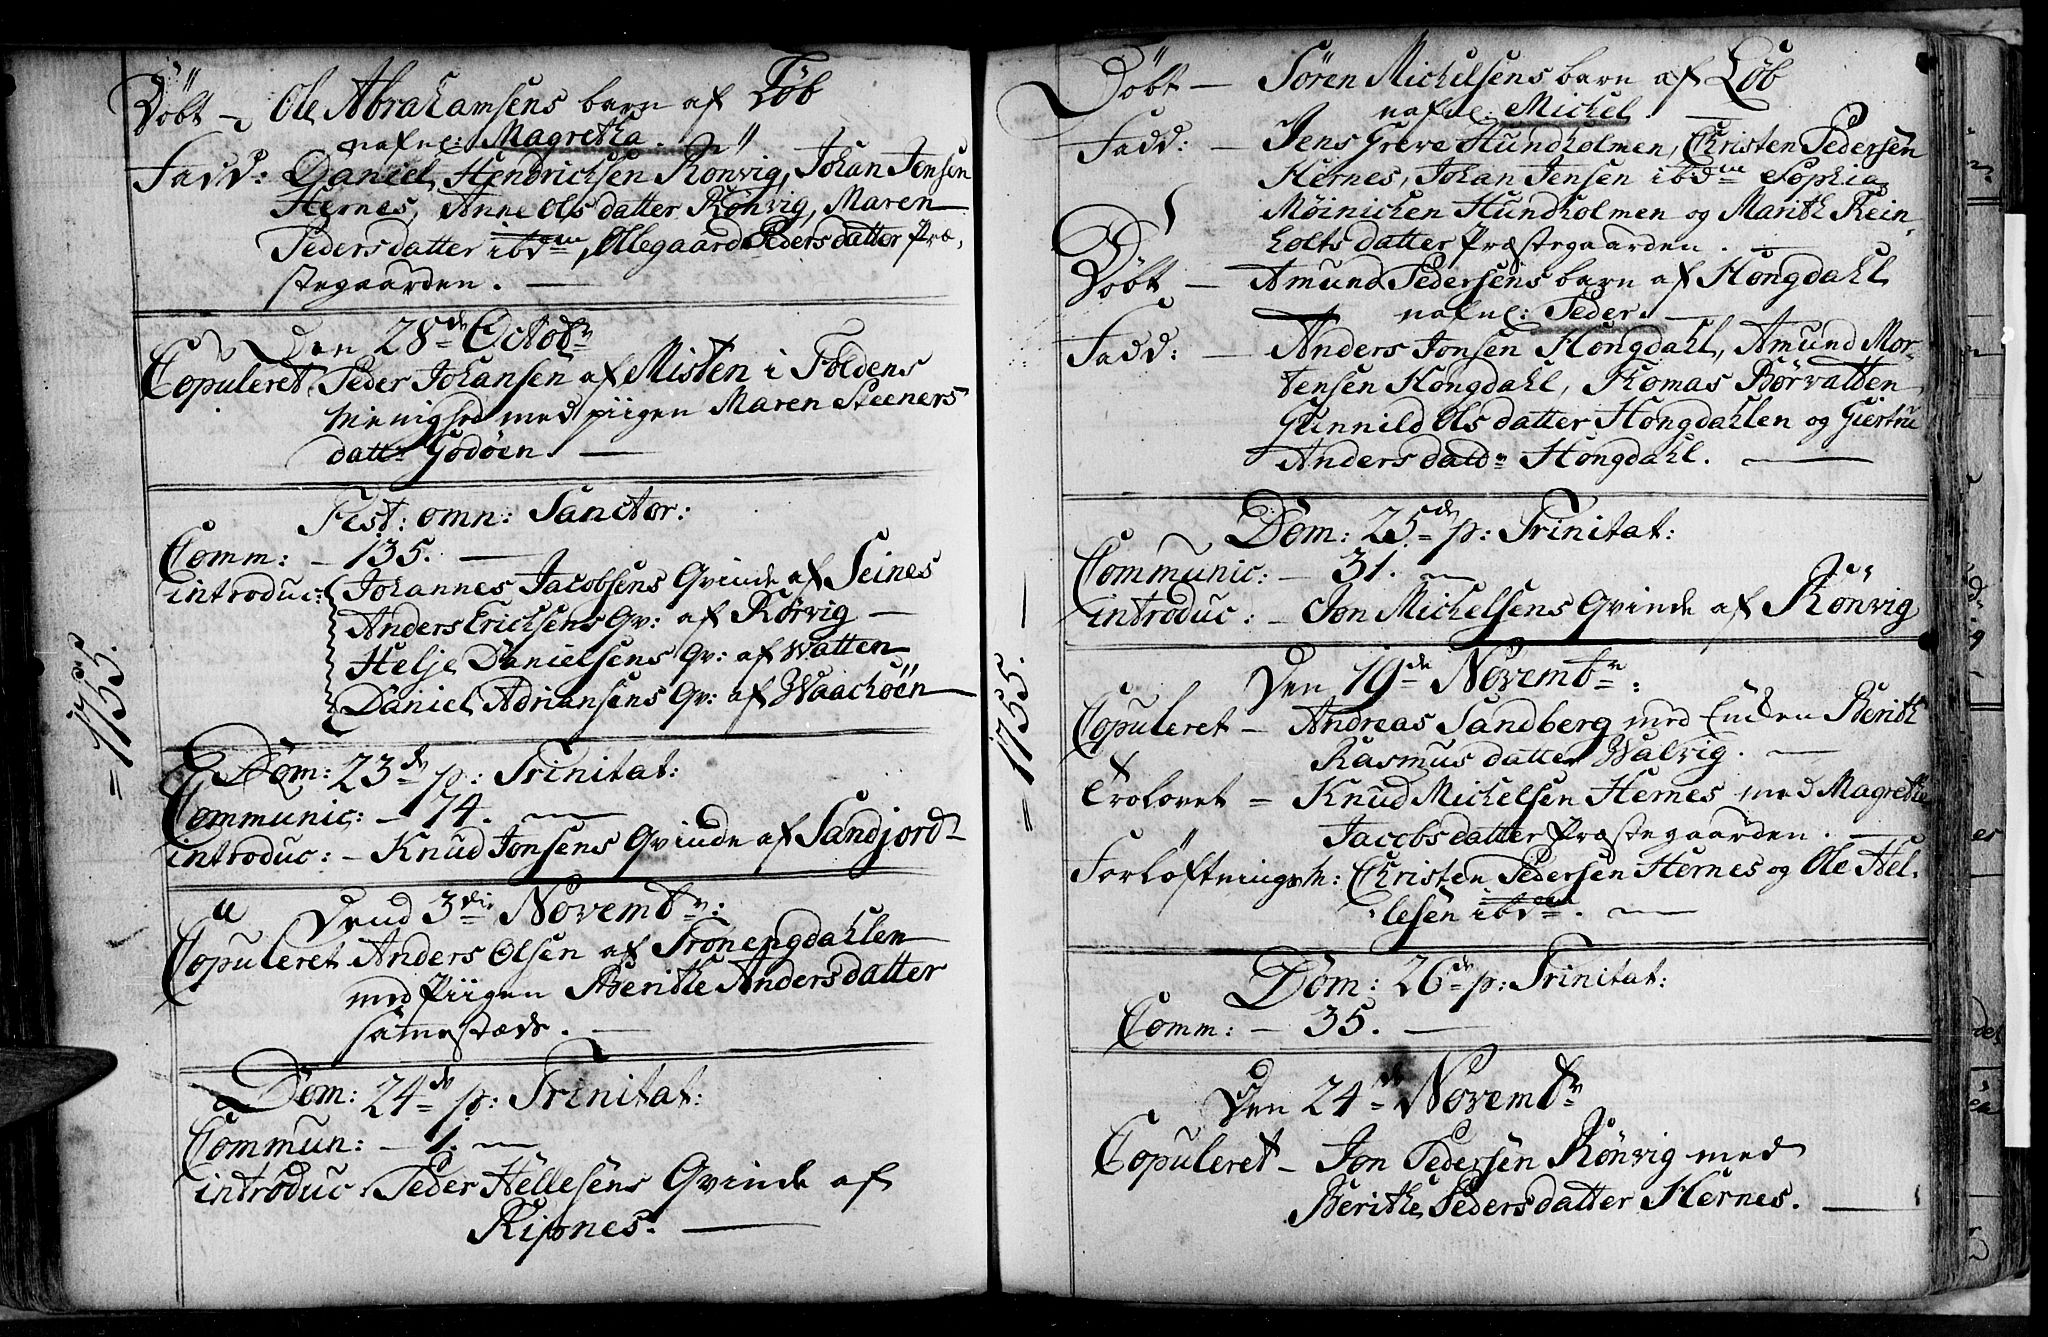 Döbt - Ole Abrahamsens barn af Löb
nafnl: Magretha.
Fadd: Daniel Hendrichsen Rönvig, Johan Jensen
Hernes, Anne Olsdatter Rönvig, Maren
Pedersdatter ibdem, Ollegaard Pedersdatter Præ-
stegaarden.
Den 28de Octobr
Copuleret Peder Johansen af Misten i Foldens
Menighed med piigen Maren Steeners
dattr Godöen.
Fest: omn: Sanctor:
Comm: - 135.
introduc: Johannes Jacobsens Qvinde af Seines
Anders Erichsens Qv: af Rörvig
Helje Danielsens Qv: af Watten
Daniel Adriansens Qv: af Waachöen
= 1755.
Dom: 23de p: Trinitat:
Communic: - 74.
introduc: - Knud Jonsens Qvinde af Sandjord
Dend 3die Novembr:
Copuleret Anders Olsen af Tronengdahlen
med Piigen Berithe Andersdatter
samestæds.
Dom: 24de p: Trinitat:
Commun: - 1.
introduc: Peder Hellesens Qvinde af
Ripnes.
Döbt - Sören Michelsens barn af Löb
nafnl: Michel
Fadd: - Jens Greve Hundholmen, Christen Pedersen
Hernes, Johan Jensen ibdem Sophia
Möinichen Hundholmen og Marith Rein-
holtsdatter Præstegaarden.
Döbt - Amund Pedersens barn af Hongdahl
nafnl: Peder.
Fadd: - Anders Jonsen Hongdahl, Amund Mor-
tensen Hongdahl, Thomas Börvatten
Gunnild Olsdatter Hongdahlen og Giertru
Andersdattr Hongdahl.
Dom: 25de p: Trinitat:
Communic: - 31.
introduc: - Jon Michelsens Qvinde af Rönvig
= 1755.
Den 19de Novembr:
Copuleret - Andreas Sandberg med Enken Berith
Rasmusdatter Walvig.
Trolovet = Knud Michelsen Hernes med Magrethe
Jacobsdatter Præstegaarden.
Forløftningsm: Christen Pedersen Hernes og Ole Hel-
lesen ibdem.
Dom: 26de p: Trinitat:
Comm: - 35.
Den 24de Novembr
Copuleret - Jon Pedersen Rönvig med
Berithe Pedersdatter Hernes.